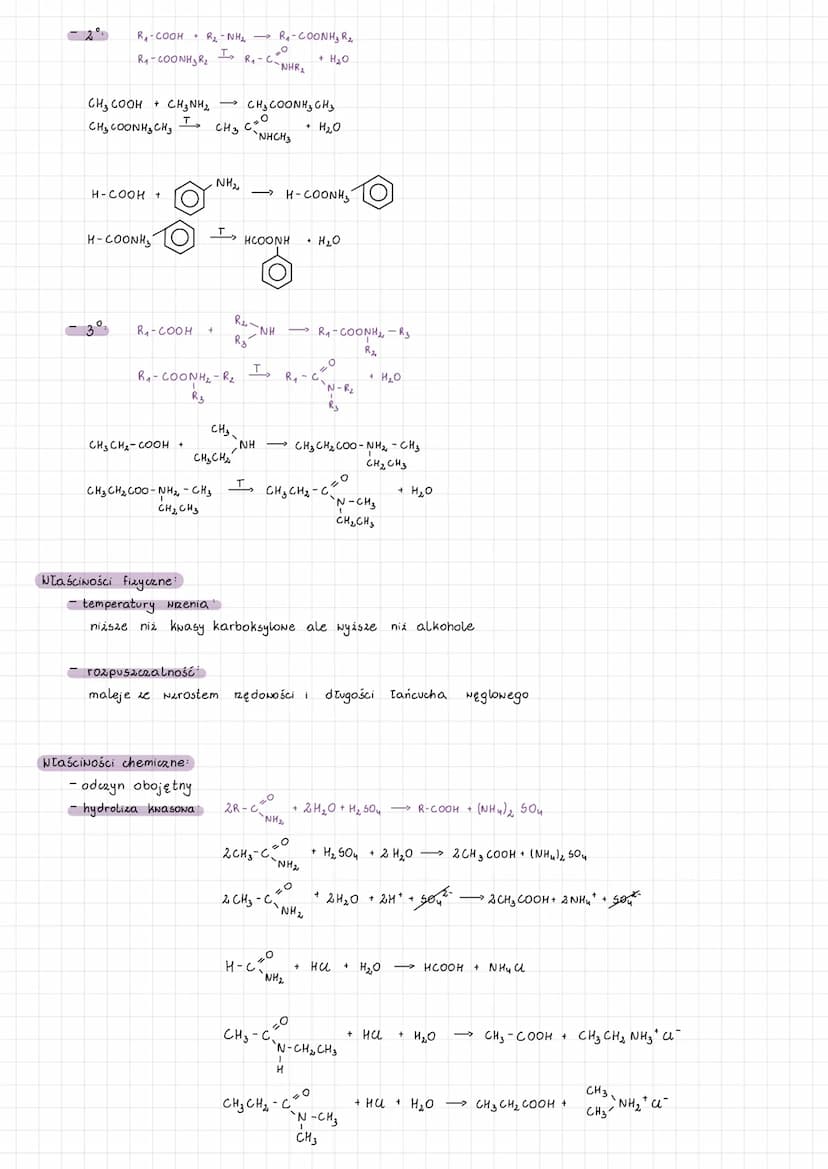 - 2°:
R₁-COOH + R₂-NH₂ → R₁-COONH₃R₂
R₁-COONH₃R₂ T→ R₁-C=O NHR₂ + H₂O
CH₃COOH + CH₃NH₂ → CH₃COONH₃CH₃
CH₃COONH₃CH₃ T→ CH₃C=O NHCH₃ + H₂O
H-COOH + NH₂ → H-COONH₃
H-COONH₃ T→ HCOONH + H₂O
- 3°:
R₁-COOH + R₂ R₃ NH → R₁-COONH₂-R₃
R₂
R₁-COONH₂-R₂ T→ R₁-C=O N-R₂ + H₂O
R₃ R₃
CH₃CH₂-COOH + CH₃ CH₃CH₂ NH → CH₃CH₂COO-NH₂-CH₃
CH₂CH₃
CH₃CH₂COO-NH₂-CH₃ T→ CH₃CH₂-C=O N-CH₃ + H₂O
CH₂CH₃ CH₂CH₃
Właściwości fizyczne:
- temperatury wrzenia:
niższe niż kwasy karboksylowe ale wyższe niż alkohole
- rozpuszczalność:
maleje ze wzrostem rzędowości i długości łańcucha węglowego
Właściwości chemiczne:
- odczyn obojętny
- hydroliza kwasowa: 2R-C=O NH₂ + 2H₂O + H₂SO₄ → R-COOH + (NH₄)₂SO₄
2CH₃-C=O NH₂ + H₂SO₄ + 2H₂O → 2CH₃COOH + (NH₄)₂SO₄
2CH₃-C=O NH₂ + 2H₂O + 2H⁺ + SO₄²⁻ → 2CH₃COOH + 2NH₄⁺ + SO₄²⁻
H-C=O NH₂ + HCl + H₂O → HCOOH + NH₄Cl
CH₃-C=O N-CH₂CH₃ + HCl + H₂O → CH₃-COOH + CH₃CH₂NH₃⁺Cl⁻
H
CH₃CH₂-C=O N-CH₃ + HCl + H₂O → CH₃CH₂COOH + CH₃ CH₃ NH₂⁺Cl⁻
CH₃